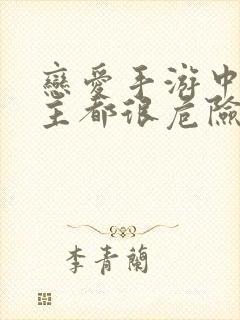 戀愛手游中
主都很危險
李青蘭